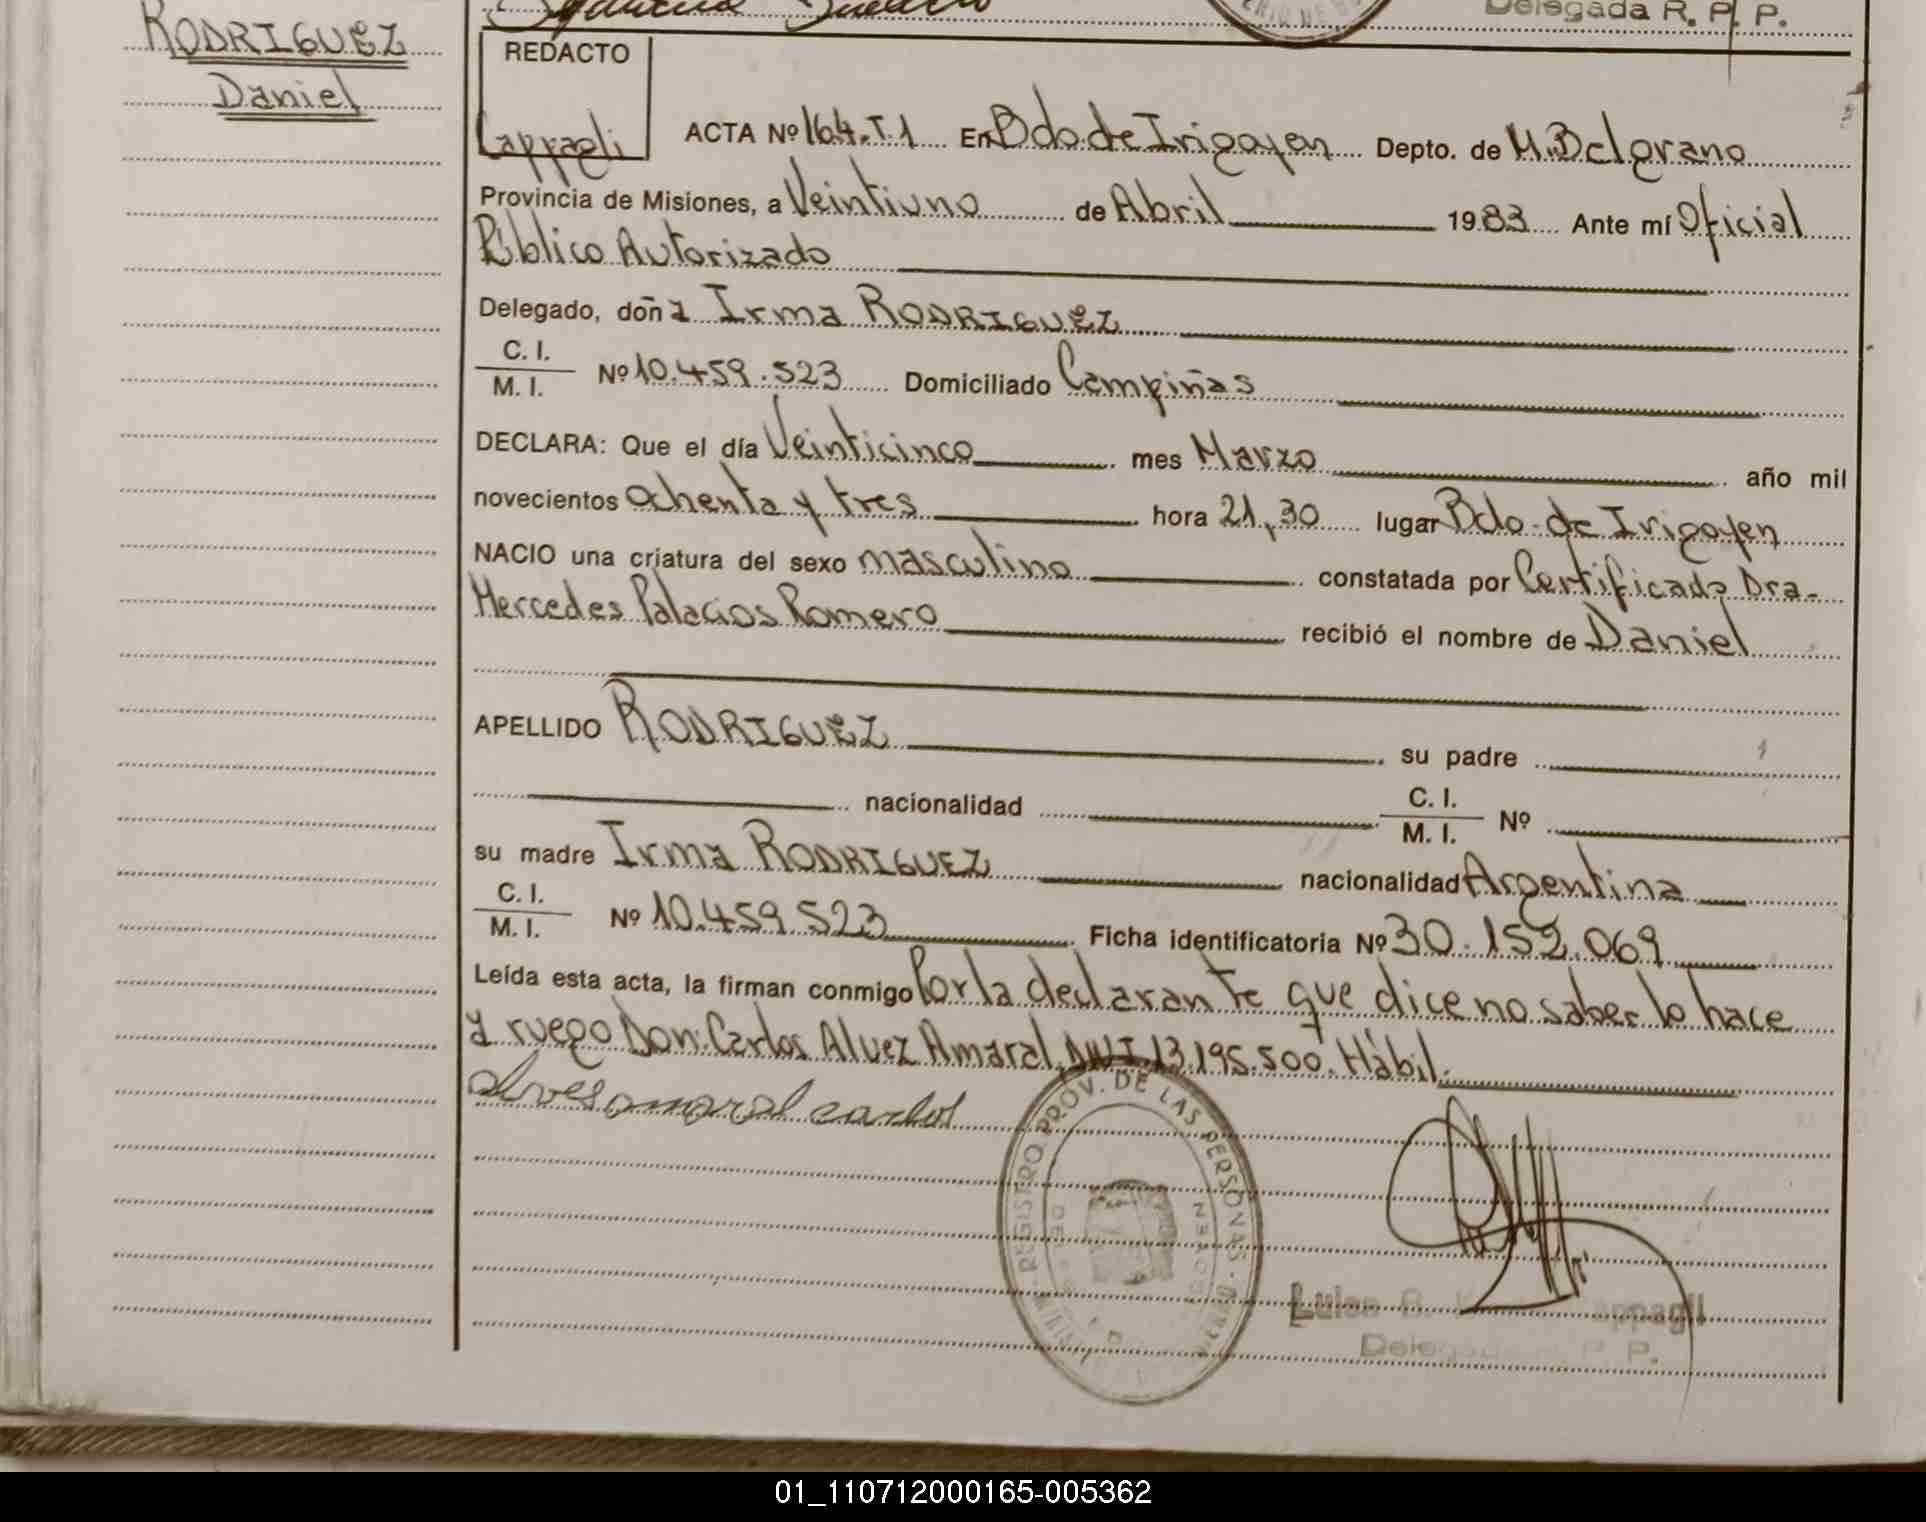 RODRIGUEZ
Daniel
Delegada R. P. P.
REDACTO
Cappagli
ACTA Nº 164.T.1 En Bdo. de Irigoyen Depto. de M. Belgrano
Provincia de Misiones, a Veintiuno de Abril 1983 Ante mí Oficial
Público Autorizado
Delegado, doña Irma RODRIGUEZ
C. I.
M. I. Nº 10.459.523 Domiciliado Campiñas
DECLARA: Que el día Veinticinco mes Marzo año mil
novecientos ochenta y tres hora 21,30 lugar Bdo. de Irigoyen
NACIO una criatura del sexo masculino constatada por Certificado Dra.
Mercedes Palacios Romero recibió el nombre de Daniel
APELLIDO RODRIGUEZ su padre
nacionalidad C. I. M. I. Nº
su madre Irma RODRIGUEZ nacionalidad Argentina
C. I.
M. I. Nº 10.459.523 Ficha identificatoria Nº 30.152.069
Leída esta acta, la firman conmigo Por la declarante que dice no saber lo hace
a ruego Don: Carlos Alvez Amaral, DNI 13.195.500. Hábil.
alves amaral carlos
REGISTRO PROV. DE LAS PERSONAS
Luisa B. appagli
Delegada R. P. P.
01_110712000165-005362